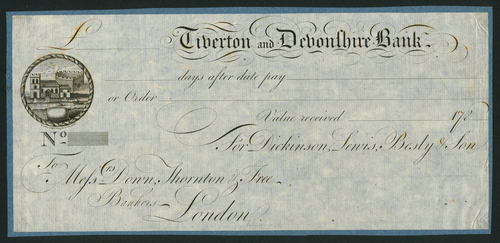 £ Tiverton and Devonshire Bank.
days after date pay
or Order
Value received 179
No.
For Dickinson, Lewis, Besly & Son
To
Messrs Down, Thornton & Free
Bankers
London.